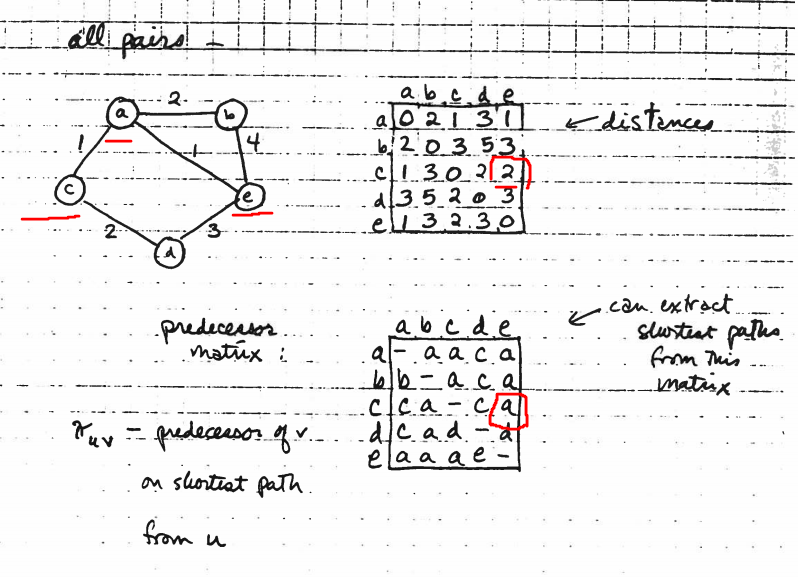 all pairs -
a 2 b
1 1 4
c e
2 3
d
a b c d e
a 0 2 1 3 1
b 2 0 3 5 3
c 1 3 0 2 2
d 3 5 2 0 3
e 1 3 2 3 0
← distances
predecessor
matrix :
a b c d e
a - a a c a
b b - a c a
c c a - c a
d c a d - d
e a a a e -
← can extract
shortest paths
from this
matrix
π uv - predecessor of v
on shortest path
from u